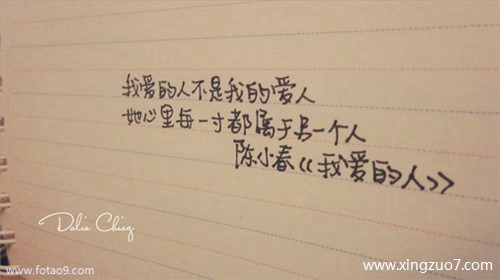 我爱的人不是我的爱人
她心里每一寸都属于另一个人
陈小春《我爱的人》
Dalie Chieq
www.fotao9.com
www.xingzuo7.com